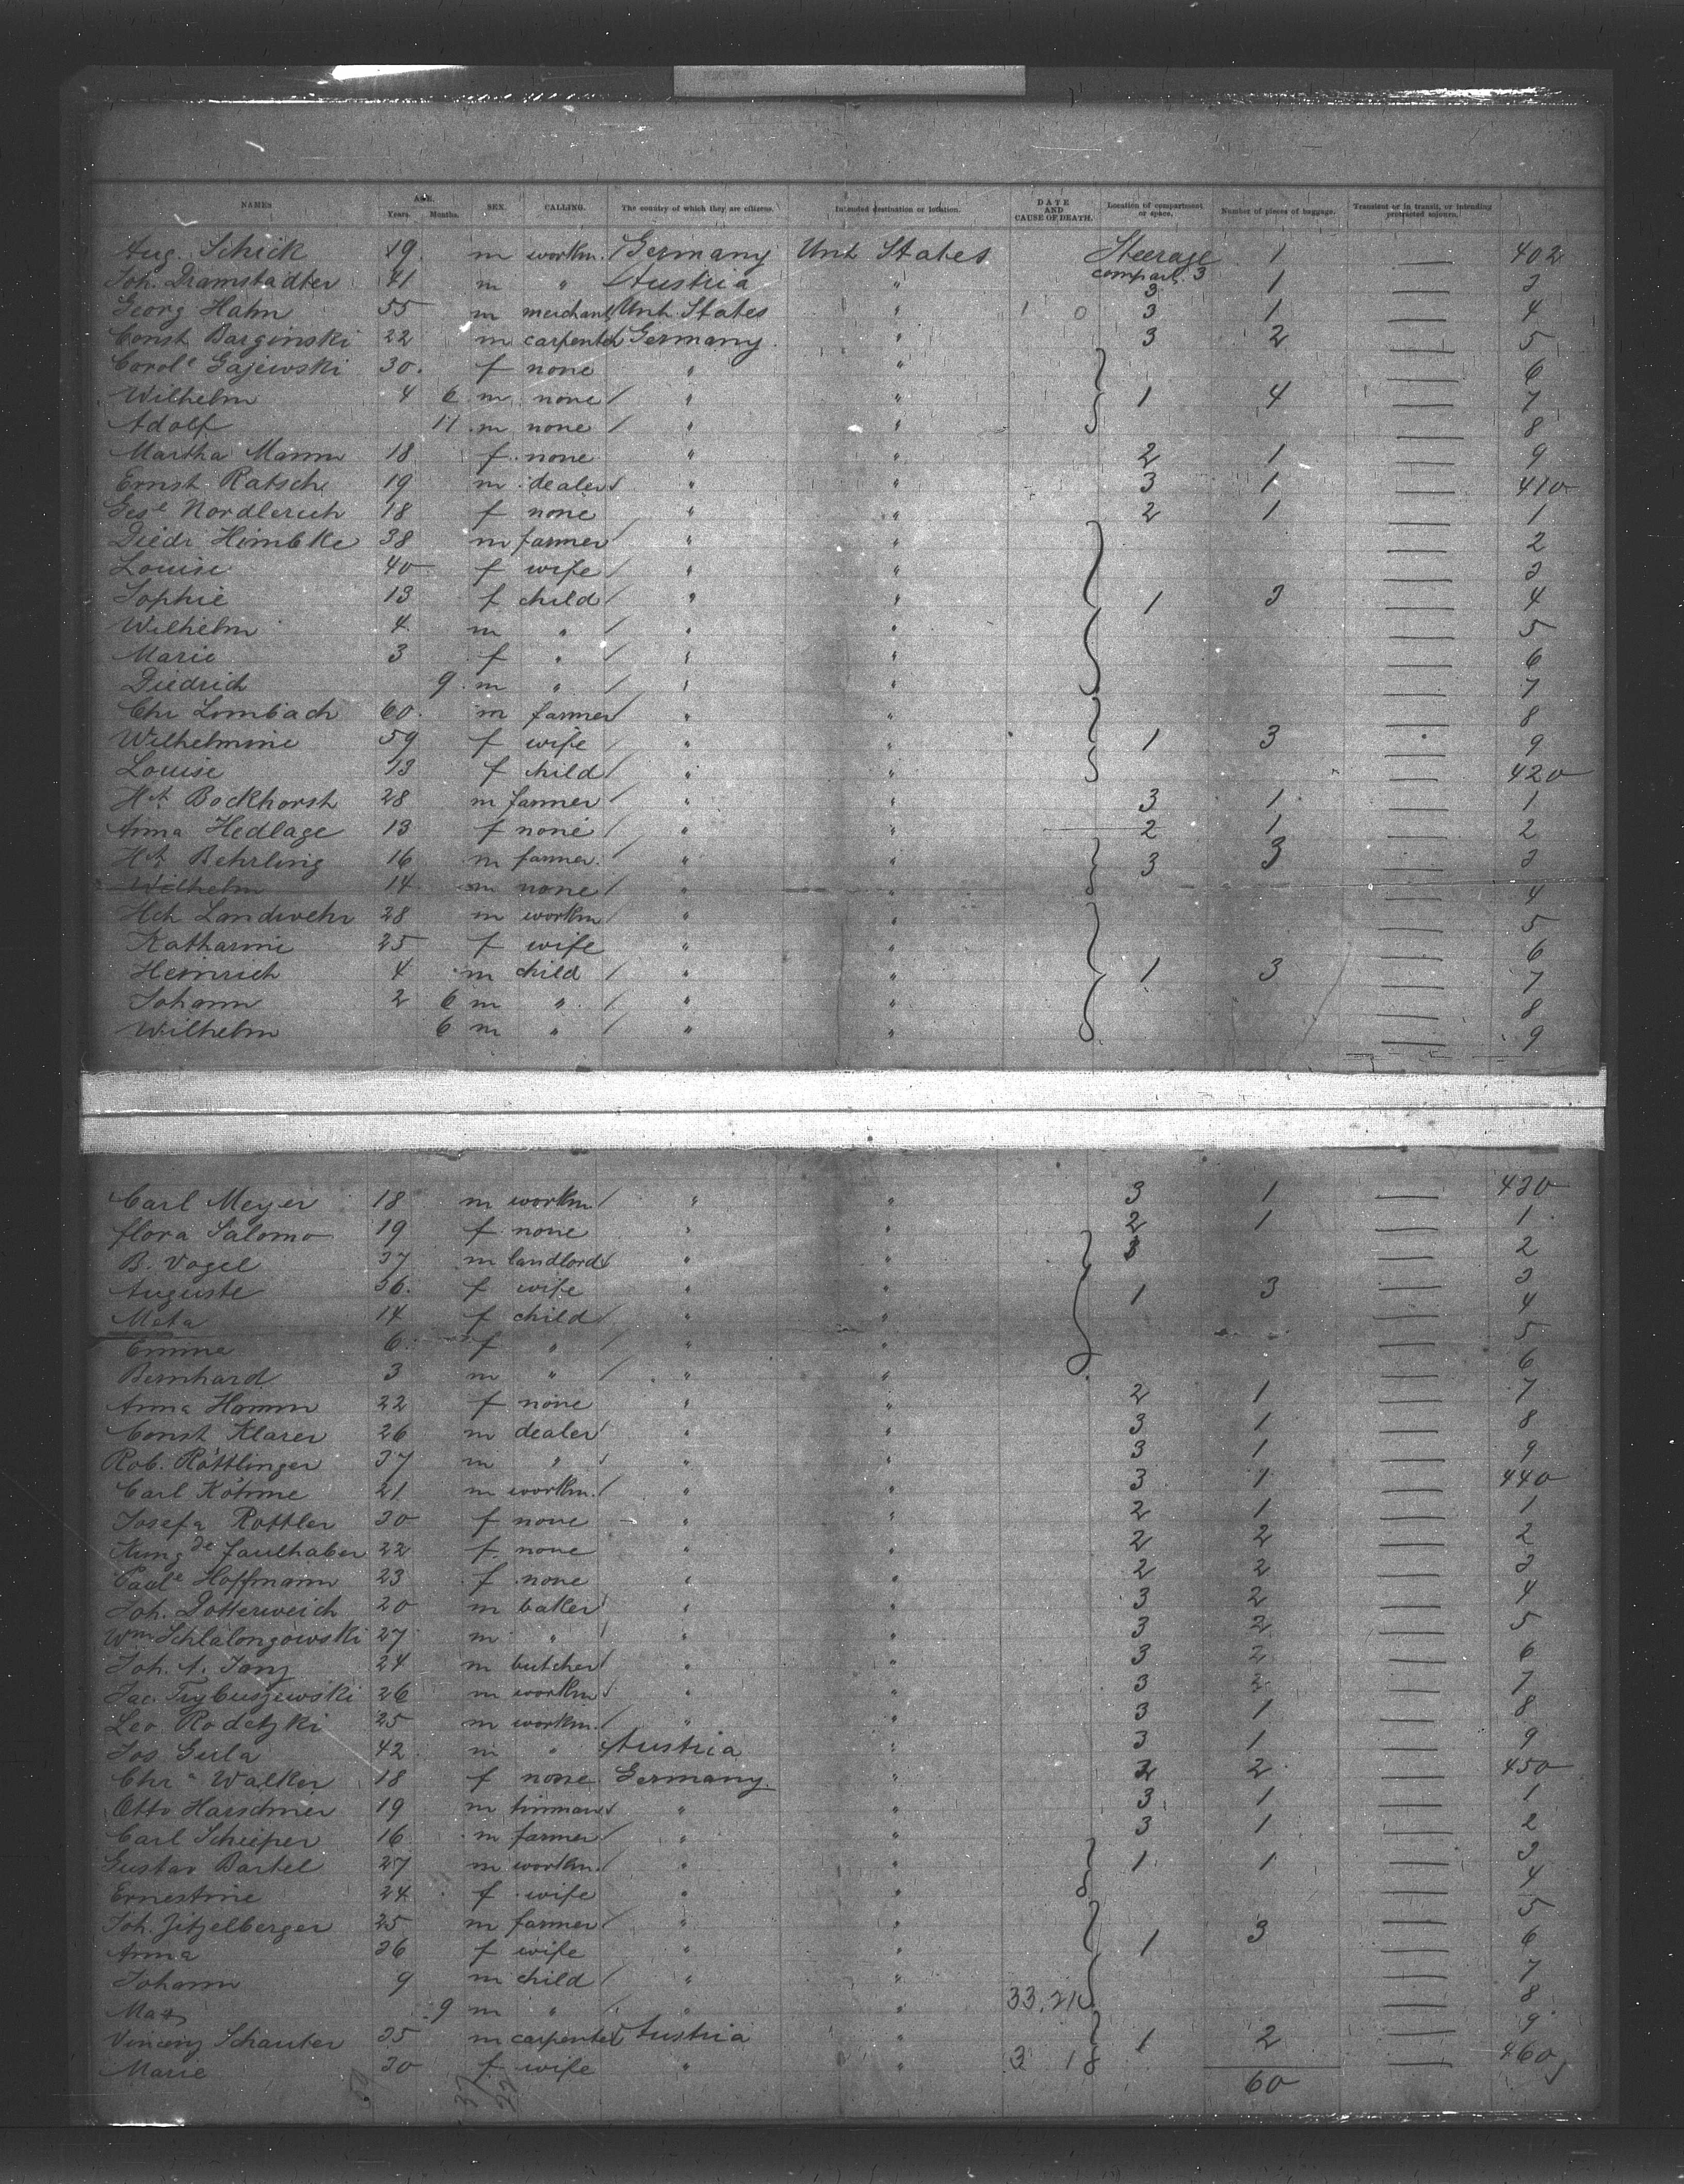 NAMES AGE. Years. Months. SEX. CALLING. The country of which they are citizens. Intended destination or location. DATE AND CAUSE OF DEATH. Location of compartment or space. Number of pieces of baggage. Transient or in transit, or intending protracted sojourn.
Aug. Schick 19 m workm. Germany Unit States Steerage 1 — 402
Joh. Dramstadter 41 m " Austria " compart. 3 3 1 — 3
Georg Hahn 55 m merchant Unit. States " 3 1 — 4
Const Barginski 22 m carpenter Germany " 3 2 — 5
Carole Gajewski 30 f none " " — 6
Wilhelm 4 6 m none " " 1 4 — 7
Adolf 11 m none " " — 8
Martha Mann 18 f none " " 2 1 — 9
Ernst Ratsch 19 m dealer " " 3 1 — 410
Gese Nordlerich 18 f none " " 2 1 — 1
Diedr Himbke 38 m farmer " " — 2
Louise 40 f wife " " — 3
Sophie 13 f child " " 1 3 — 4
Wilhelm 4 m " " " — 5
Marie 3 f " " " — 6
Diedrich 9 m " " " — 7
Chr Limbach 60 m farmer " " — 8
Wilhelmine 59 f wife " " 1 3 — 9
Louise 13 f child " " — 420
Ht. Bockhorst 28 m farmer " " 3 1 — 1
Anna Hedlage 13 f none " " 2 1 — 2
Ht. Behrling 16 m farmer " " 3 3 — 3
Wilhelm 14 m none " " — 4
Hch Landwehr 28 m workm " " — 5
Katharine 25 f wife " " — 6
Heinrich 4 m child " " 1 3 — 7
Johann 2 6 m " " " — 8
Wilhelm 6 m " " " — 9
Carl Meyer 18 m workm " " 3 1 — 430
Flora Salomo 19 f none " " 2 1 — 1
B. Vogel 37 m landlord " " 3 — 2
Auguste 36 f wife " " 1 3 — 3
Meta 14 f child " " — 4
Emma 6 f " " " — 5
Bernhard 3 m " " " — 6
Anna Hamm 22 f none " " 2 1 — 7
Const Klarer 26 m dealer " " 3 1 — 8
Rob. Röttlinger 37 m " " " 3 1 — 9
Carl Köhme 21 m workm. " " 3 1 — 440
Josefa Rottler 30 f none " " 2 1 — 1
Kungde Faulhaber 22 f none " " 2 2 — 2
Paule Hoffmann 23 f none " " 2 2 — 3
Joh. Dotterweich 20 m baker " " 3 2 — 4
Wm Schlalongowski 27 m " " " 3 2 — 5
Joh. A. Janz 24 m butcher " " 3 2 — 6
Jac. Trybuszewski 26 m workm " " 3 2 — 7
Leo Rodetzki 25 m workm. " " 3 1 — 8
Jos Gula 42 m " Austria " 3 1 — 9
Chra Walker 18 f none Germany " 2 2 — 450
Otto Harschner 19 m tinman " " 3 1 — 1
Carl Schieper 16 m farmer " " 3 1 — 2
Gustav Bartel 27 m workm. " " 1 1 — 3
Ernestine 24 f wife " " — 4
Joh. Zitzelberger 25 m farmer " " — 5
Anna 26 f wife " " 1 3 — 6
Johann 9 m child " " — 7
Max 9 m " " " 33. — 8
Vincenz Schauter 35 m carpenter Austria " 1 2 — 9
Marie 30 f wife " " 3 18 — 460
60